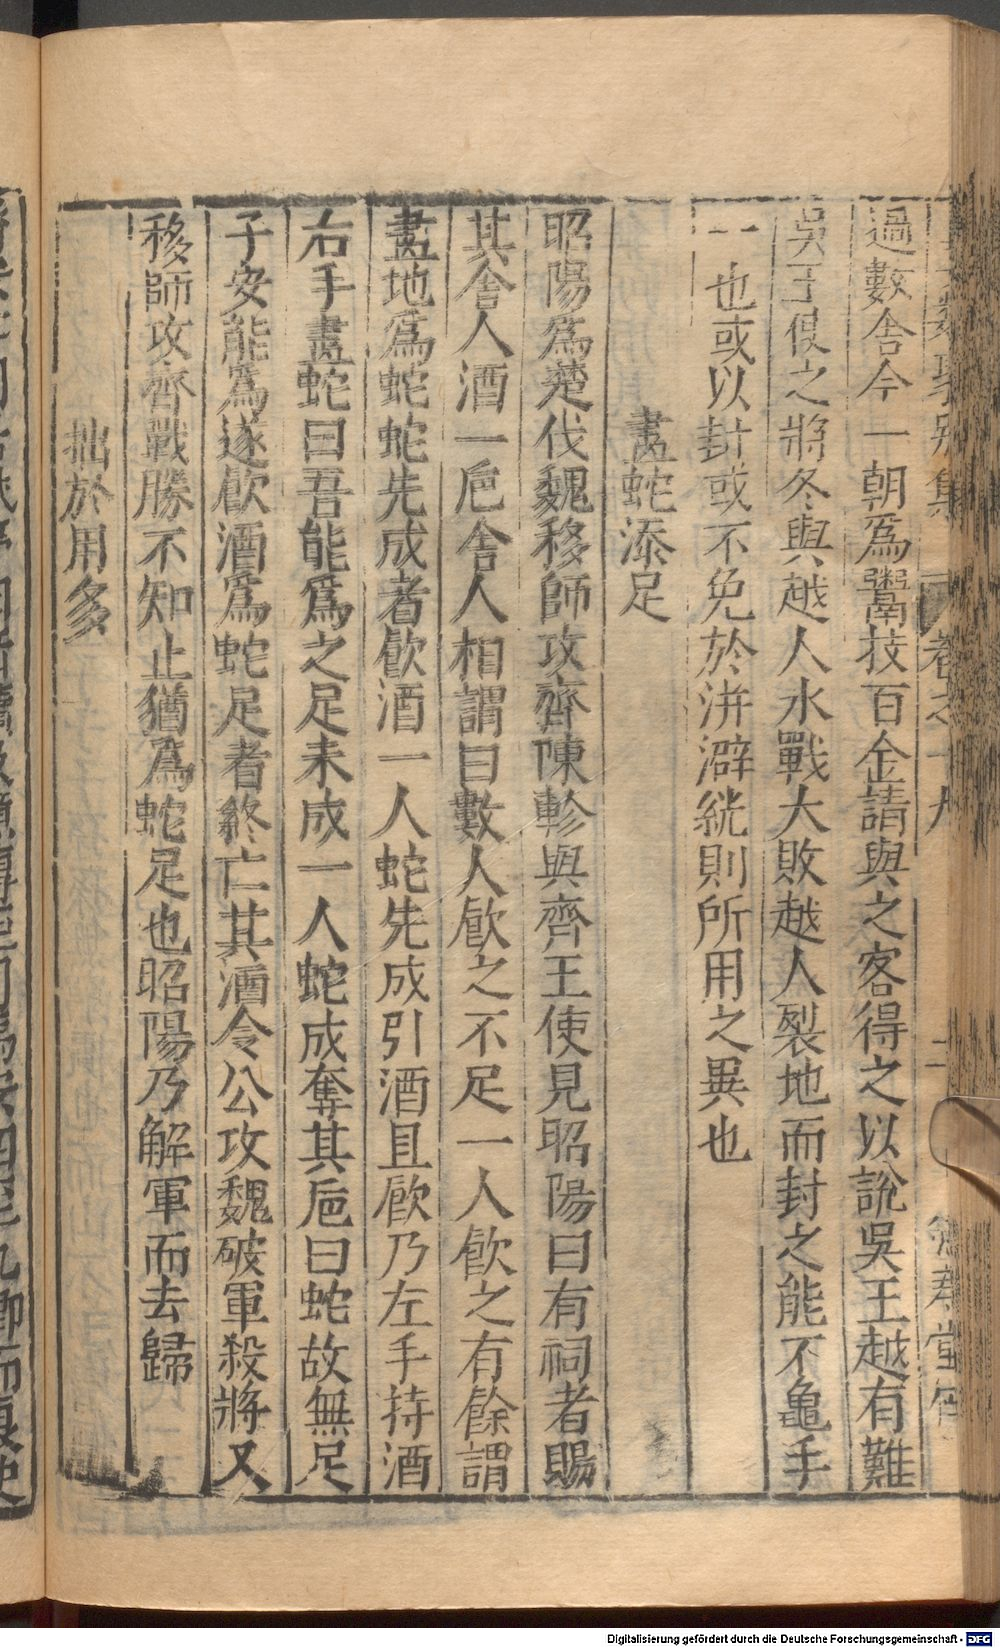 過數舍今一朝爲鬻技百金請與之客得之以說吳王越有難
吳王使之將冬與越人水戰大敗越人裂地而封之能不龜手
一也或以封或不免於洴澼絖則所用之異也
畫蛇添足
昭陽爲楚伐魏移師攻齊陳軫與齊王使見昭陽曰有祠者賜
其舍人酒一巵舍人相謂曰數人飮之不足一人飮之有餘謂
畫地爲蛇蛇先成者飮酒一人蛇先成引酒且飮乃左手持酒
右手畫蛇曰吾能爲之足未成一人蛇成奪其巵曰蛇故無足
子安能爲遂飮酒爲蛇足者終亡其酒今公攻魏破軍殺將又
移師攻齊戰勝不知止猶爲蛇足也昭陽乃解軍而去歸
拙於用多
Digitalisierung gefördert durch die Deutsche Forschungsgemeinschaft - DFG